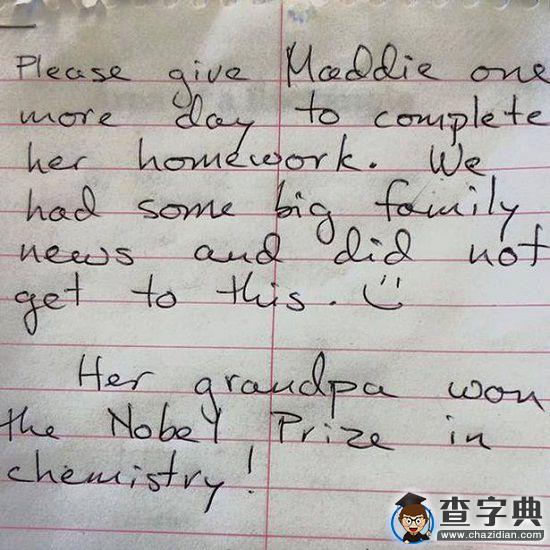 Please give Maddie one
more day to complete
her homework. We
had some big family
news and did not
get to this. :)
Her grandpa won
the Nobel Prize in
chemistry!
查字典
www.chazidian.com